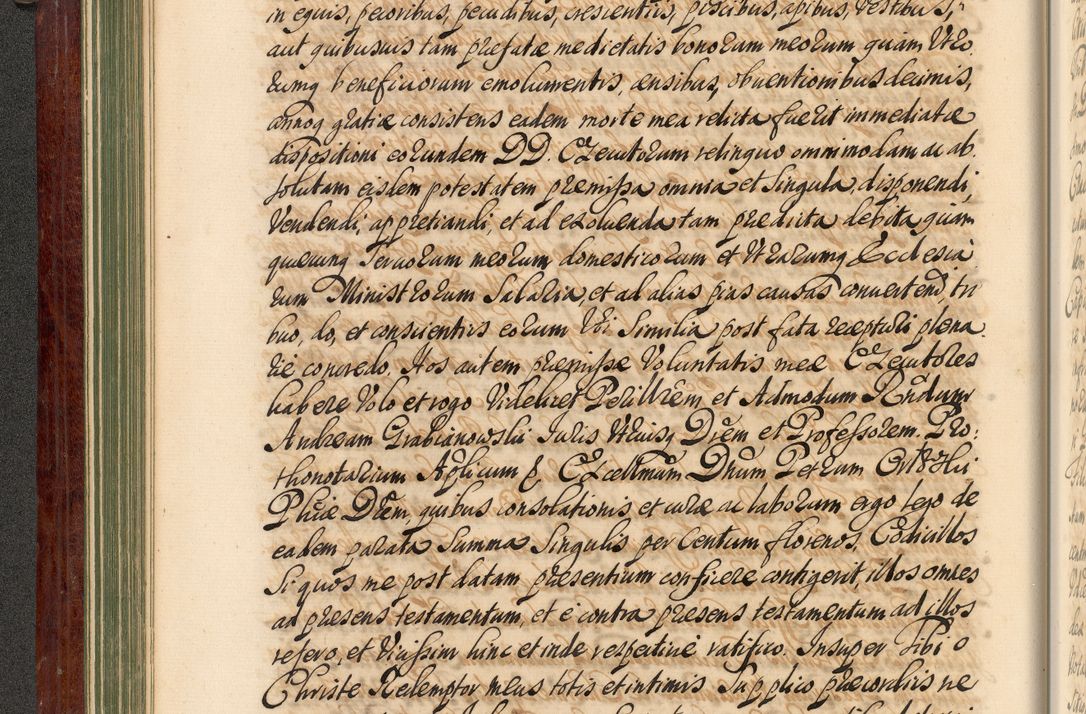 in equis, pecoribus, pecudibus, crescentiis, piscibus, apibus, vestibus,
aut quibusuis tam præfatæ medietatis bonorum meorum quàm Utro
rumq beneficiorum emolumentis, censibus, obuentionibus decimis,
annoq gratiæ consistens eadem morte mea relicta fuerit immediatæ
dispositioni eorundem DD. Executorum relinquo omnimodam ac ab
solutam eisdem potestatem præmissa omnia et Singula disponendi,
Vendendi, appretiandi, et ad exoluenda tam prædicta debita quàm
quecunq Seruorum meorum domesticorum et Utrarumq Ecclesia
rum Ministrorum Salaria, et ad alias pias causas conuertend, tri
buo, do, et conscientiis eorum Ubi Similia post fata recepturi plena
rie concredo. Hos autem præmissæ Voluntatis meæ Executores
habere Volo et rogo Videlicet Perillrem et Admodum Rndum
Andream Grabianowski Juris Utriusq Drem et Professorem. Pro:
thonotarium Aplicum & Excellmum Dnum Petrum
Phiæ Drem, quibus consolationis et curæ ac laborum ergo lego de
eadem parata Summa Singulis per Centum florenos. Codicillos
Si quos me post datam præsentium conficere contigerit, illos omnes
ad præsens testamentum, et è contra præsens testamentum ad illos
refero, et Vicissim hinc et inde respectiuè ratifico. Insuper Tibi o
Christe Redemptor meus totis et intimis Supplico præcordiis ne